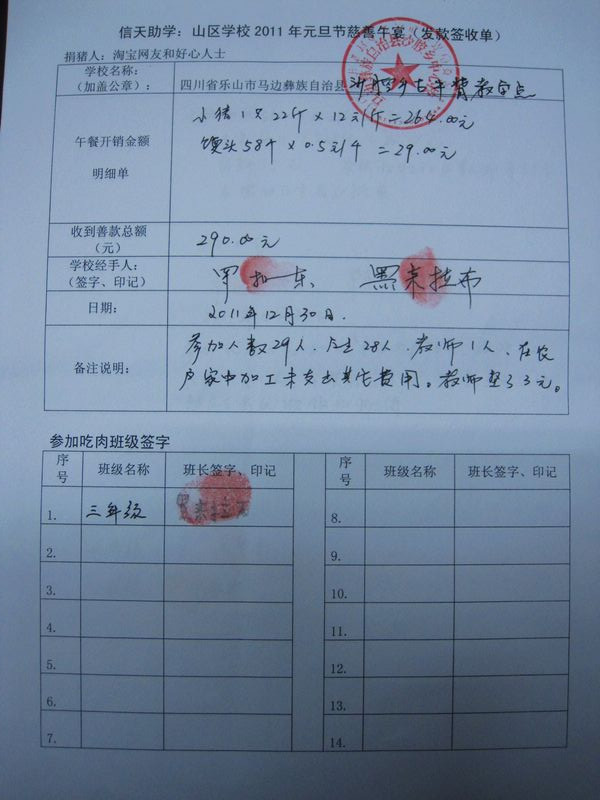 信天助学：山区学校 2011 年元旦节慈善午宴（发款签收单）
捐猪人：淘宝网友和好心人士
学校名称：
（加盖公章）：
四川省乐山市马边彝族自治县沙腔乡 教学点
午餐开销金额
明细单
小猪1只 22斤×12元/斤=264.00元
馒头58个×0.5元/个=29.00元
收到善款总额
（元）
290.00元
学校经手人：
（签字、印记）
黑来拉布
日期：
2011年12月30日.
备注说明：
参加人数29人、学生28人、教师1人、在农
户家中加工未支出其它费用。教师垫了3元。
参加吃肉班级签字
序号 班级名称 班长签字、印记 序号 班级名称 班长签字、印记
1. 三年级 8.
2. 9.
3. 10.
4. 11.
5. 12.
6. 13.
7. 14.